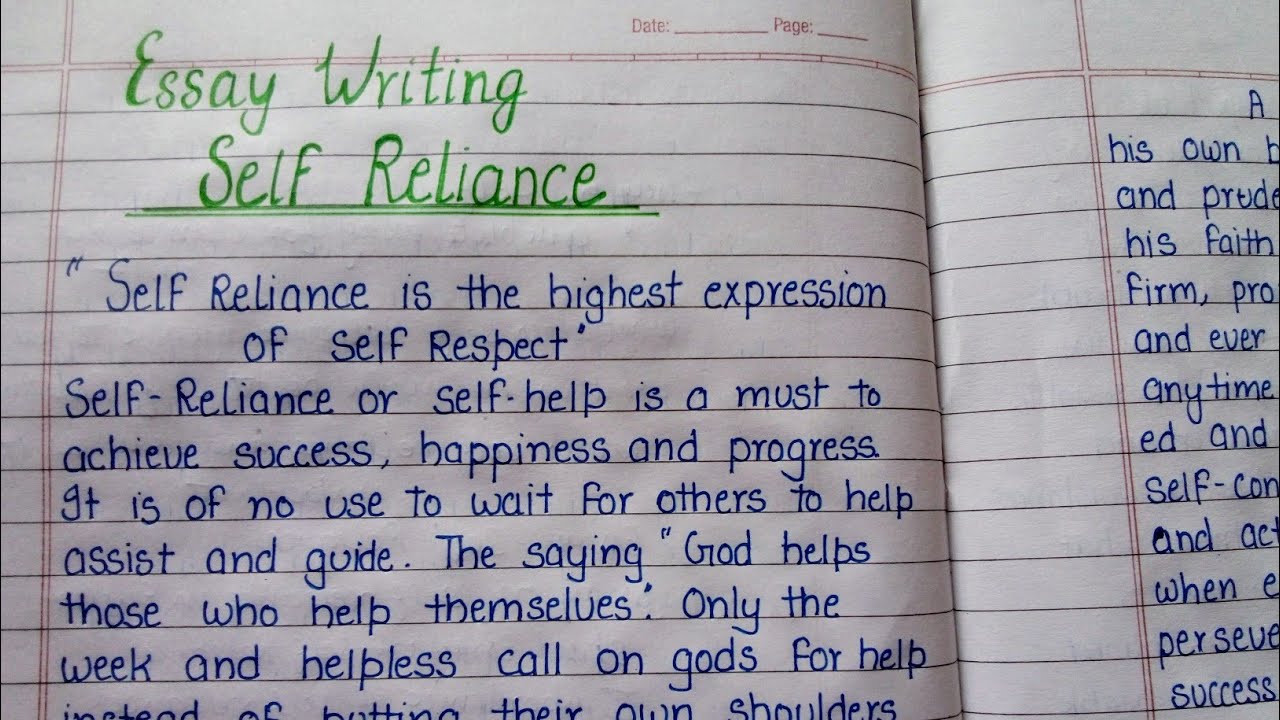 Date: ________ Page: ____
Essay Writing
Self Reliance
" Self Reliance is the highest expression
of self Respect"
Self-Reliance or self-help is a must to
achieve success, happiness and progress.
It is of no use to wait for others to help
assist and guide. The saying "God helps
those who help themselves". Only the
week and helpless call on gods for help
instead of putting their own shoulders
A
his own
and
his faith
firm,
and ever
anytime
ed and
self-
and
when
success